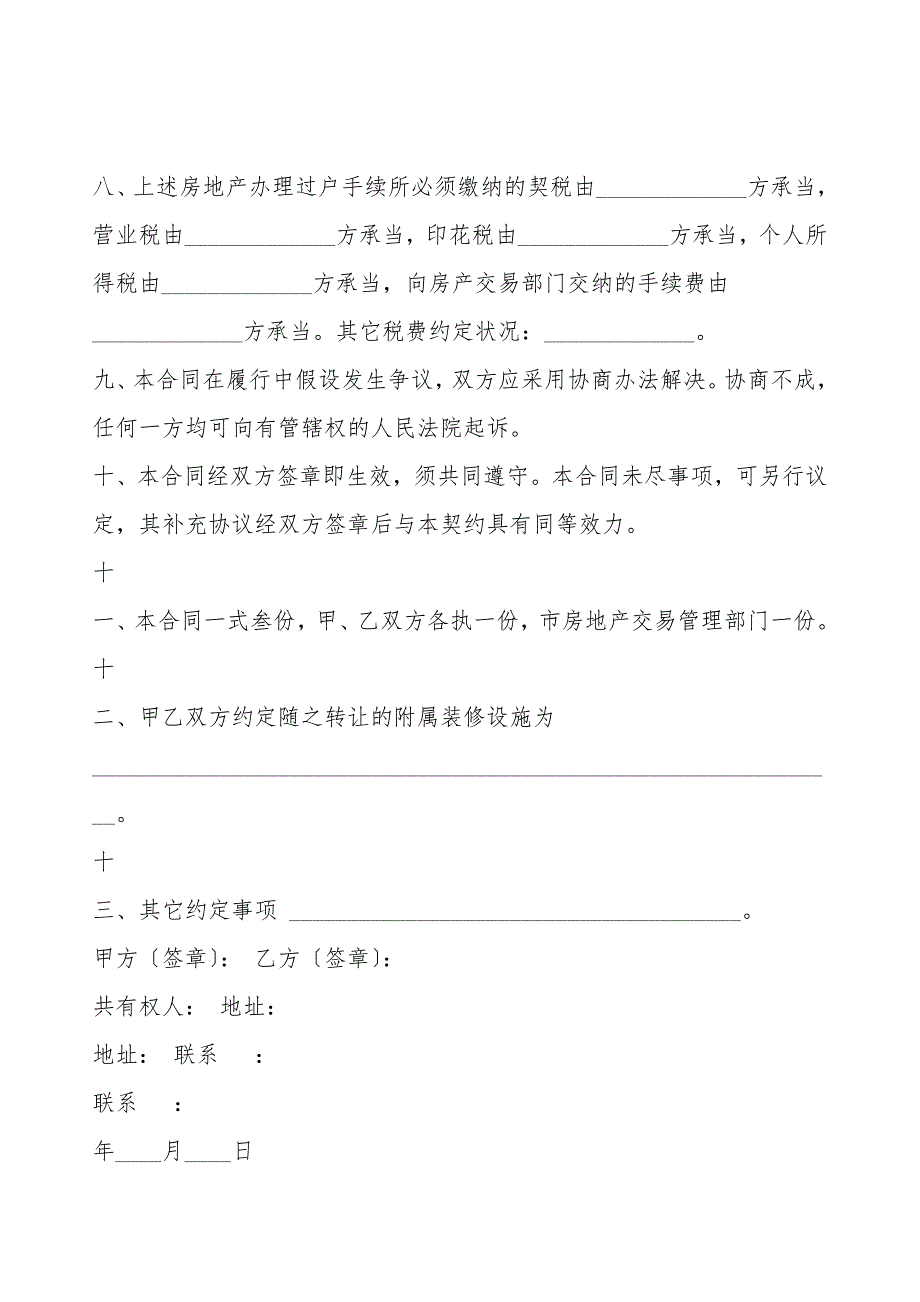 八、上述房地产办理过户手续所必须缴纳的契税由_____________方承当，
营业税由_____________方承当，印花税由_____________方承当，个人所
得税由_____________方承当，向房产交易部门交纳的手续费由
_____________方承当。其它税费约定状况：_____________。
九、本合同在履行中假设发生争议，双方应采用协商办法解决。协商不成，
任何一方均可向有管辖权的人民法院起诉。
十、本合同经双方签章即生效，须共同遵守。本合同未尽事项，可另行议
定，其补充协议经双方签章后与本契约具有同等效力。
十
一、本合同一式叁份，甲、乙双方各执一份，市房地产交易管理部门一份。
十
二、甲乙双方约定随之转让的附属装修设施为
_______________________________________________________________
__。
十
三、其它约定事项 _______________________________________。
甲方〔签章〕： 乙方〔签章〕：
共有权人： 地址：
地址： 联系 ：
联系 ：
年____月____日